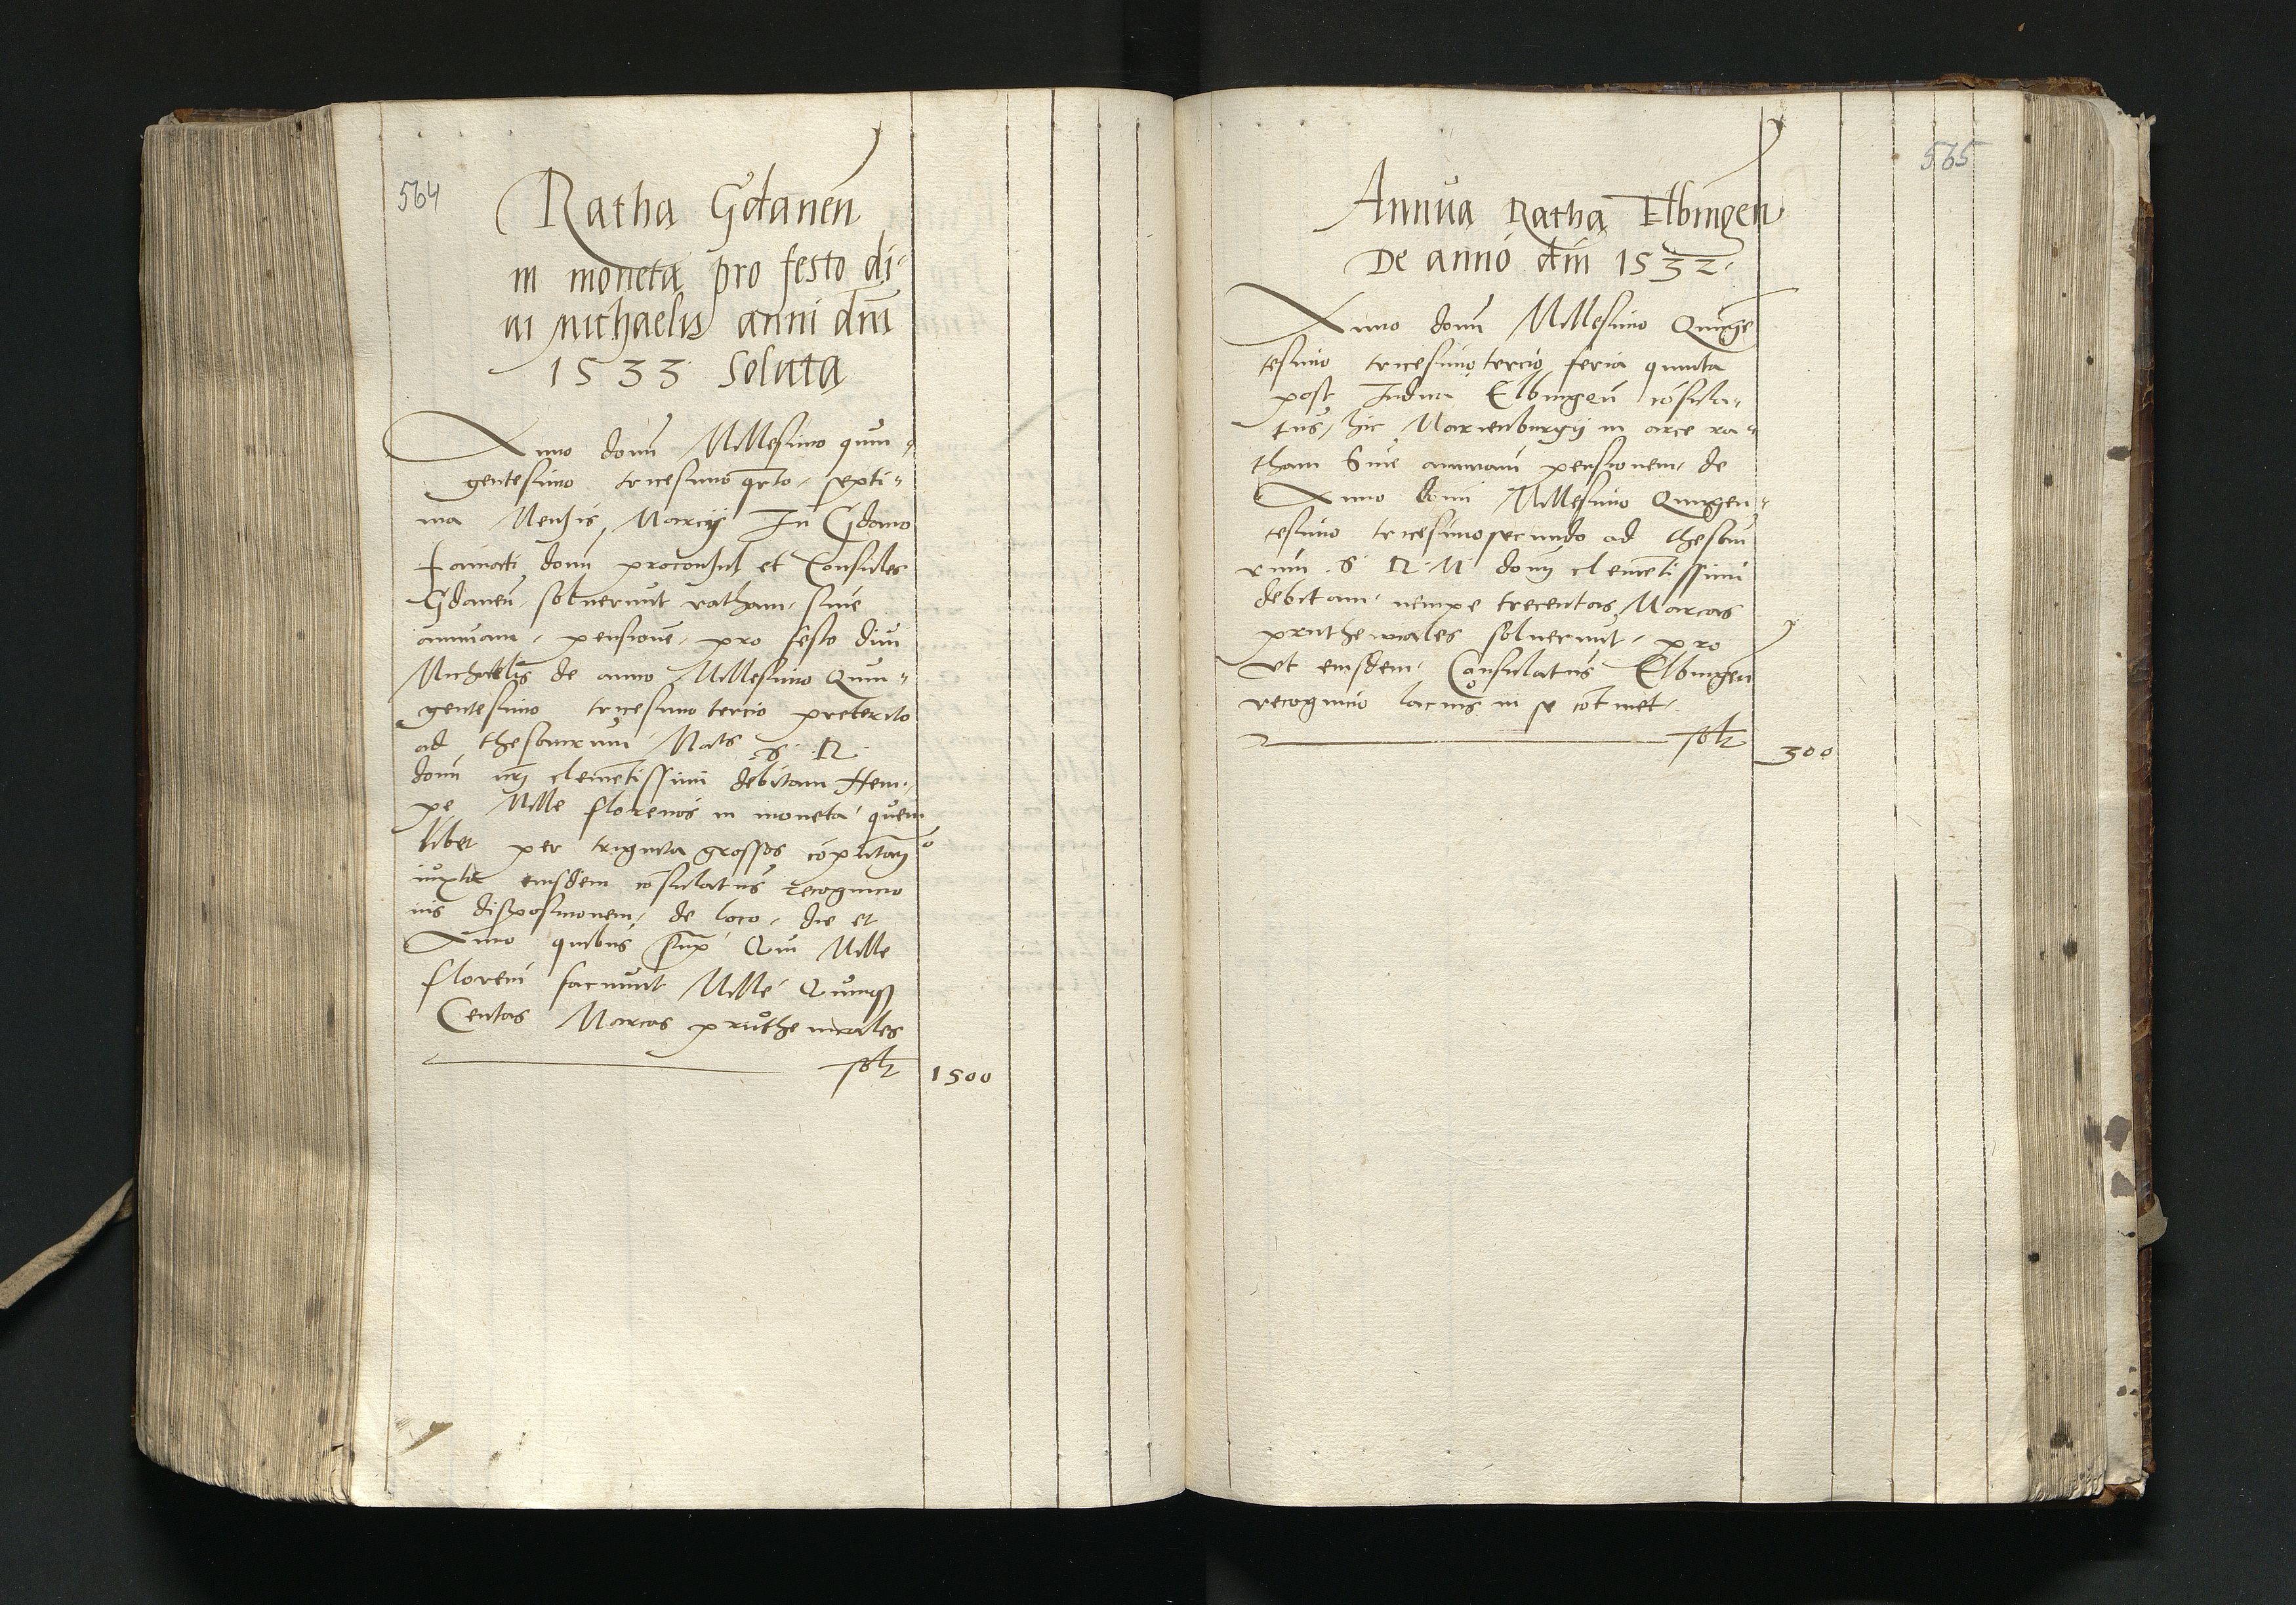 564
Ratha Gdanen
in moneta pro festo di-
ui Michaelis anni dni
1533 soluta
Anno domi Millesimo quin-
gentesimo tricesimo qrto, septi-
ma Mensis Marcij In Gdano
famati domi proconsul et Consules
Gdanen, soluerunt ratham, siue
annuam, pensione, pro festo diui
Michaelis de anno Millesimo Quin-
gentesimo tricesimo tercio preterito
ad thesaurum Mats S. R.
domi nri clemetissimi debitam Nem-
pe Mille florenos in moneta quem
libet per triginta grossos coputan
iuxta eiusdem cosulatus recognicio
nis disposicionem, de loco, die et
Anno quibus supra Qui Mille
floreni faciunt Mille Quinq
Centas Marcas pruthenicales
solt 1500
565
Annua Ratha Elbingen
De anno dni 1532.
Anno domi Millesimo Quinge
tesimo tricesimo tercio, feria quinta
post Iudica Elbingen cosula-
tus, hic Marienburgij in arce ra-
tham siue annuam pensionem, de
Anno domi Millesimo Quingen-
tesimo tricesimosecundo ad thesau
rum S. R. M. domi clemetissimi
debitam, nempe trecentas Marcas
pruthenicales soluerunt, pro
ut eiusdem Consulatus Elbingen
recognicio lacius in se cotinet.
solt 300